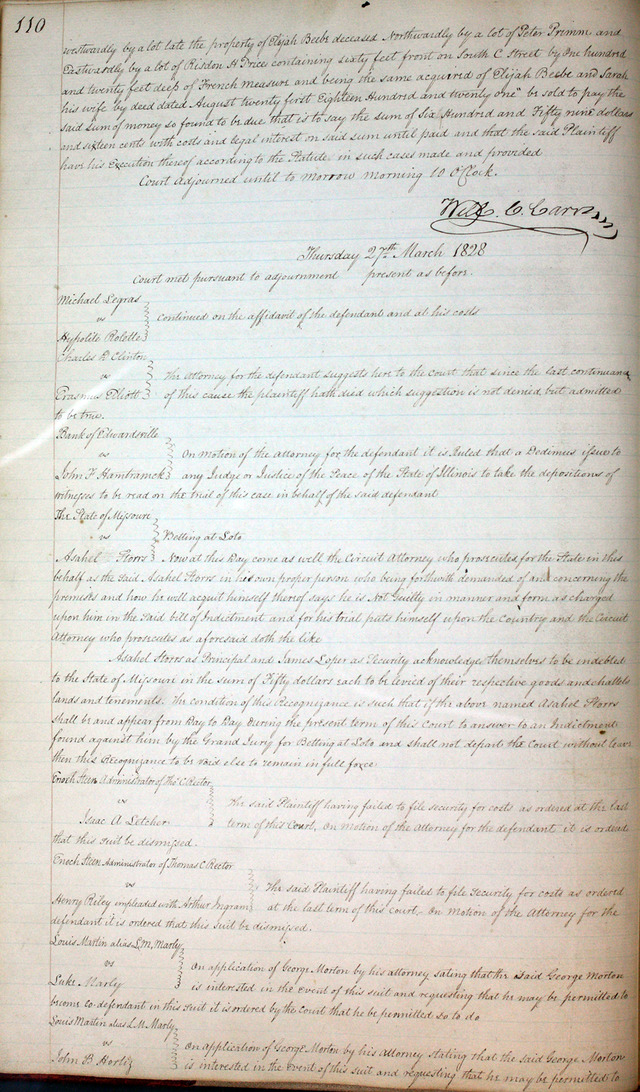 110
westwardly by a lot late the property of Elijah Beebe deceased Northwardly by a lot of Peter Primm and
Eastwardly by a lot of Risdon H Price containing sixty feet front on South C Street by One hundred
and twenty feet deep of French measure and being the same acquired of Elijah Beebe and Sarah
his wife by deed dated August twenty first Eighteen Hundred and twenty one" be sold to pay the
said sum of money so found to be due that is to say the sum of Six Hundred and Fifty nine dollars
and sixteen cents with costs and legal interest on said sum until paid and that the said Plaintiff
have his Execution thereof according to the Statute in such cases made and provided
Court Adjourned until to Morrow Morning 10 O'Clock.
Will. C. Carr
Thursday 27th March 1828
Court met pursuant to adjournment present as before.
Michael Legras
vs continued on the affidavit of the defendant and at his costs
Hypolite Rolette
Charles R Clinton
vs The Attorney for the defendant suggests here to the court that since the last continuance
Erasmus Elliott of this cause the plaintiff hath died which suggestion is not denied but admitted
to be true.
Bank of Edwardsville
vs On Motion of the Attorney for the defendant it is Ruled that a Dedimus issue to
John F Hamtramck any Judge or Justice of the Peace of the State of Illinois to take the depositions of
witnesses to be read on the trial of this case in behalf of the said defendant
The State of Missouri
vs Betting at Loto
Asahel Storrs Now at this Day come as well the Circuit Attorney who prosecutes for the State in this
behalf as the said Asahel Storrs in his own proper person who being forthwith demanded of and concerning the
premises and how he will acquit himself thereof says he is Not Guilty in manner and form as charged
upon him in the said bill of Indictment and for his trial puts himself upon the Country and the Circuit
Attorney who prosecutes as aforesaid doth the like
Asahel Storrs as Principal and James Loper as Security acknowledge themselves to be indebted
to the State of Missouri in the sum of Fifty dollars each to be levied of their respective goods and chattels
lands and tenements. The condition of this Recognizance is such that if the above named Asahel Storrs
shall be and appear from Day to Day During the present term of this Court to answer to an Indictment
found against him by the Grand Jury for Betting at Loto and shall not depart the Court without leave
then this Recognizance to be void else to remain in full force
Enoch Steen Administrator of Tho: C Rector
vs The said Plaintiff having failed to file security for costs as ordered at the last
Isaac A Letcher term of this Court, On motion of the Attorney for the defendant it is ordered
that this suit be dismissed.
Enoch Steen Administrator of Thomas C Rector
vs The said Plaintiff having failed to file Security for costs as ordered
Henry Riley impleaded with Arthur Ingram at the last term of this court. On Motion of the Attorney for the
defendant it is ordered that this suit be dismissed.
Louis Martin alias L.M. Marly
vs On application of George Morton by his attorney sating that the said George Morton
Luke Marly is interested in the event of this suit and requesting that he may be permitted to
become co-defendant in this suit it is ordered by the Court that he be permitted so to do
Louis Martin alias L.M. Marly
vs On application of George Morton by his Attorney stating that the said George Morton
John B Hortiz is interested in the event of this suit and requesting that he may be permitted to